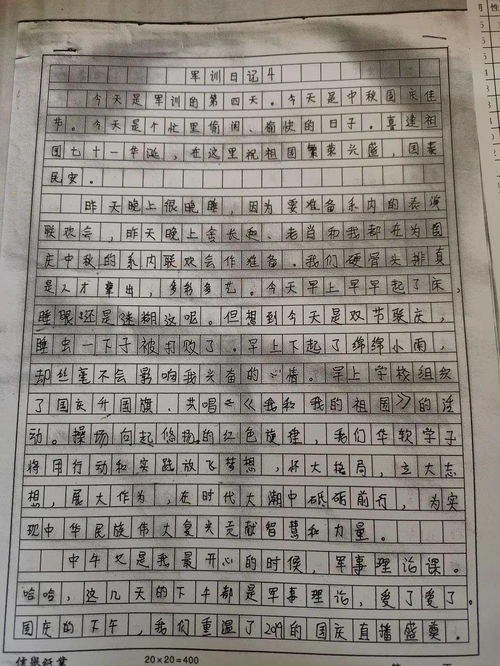 军训日记4
今天是军训的第四天。今天是中秋国庆佳
节。今天是个忙里偷闲、愉快的日子。喜逢祖
国七十一华诞,在这里祝祖国繁荣兴盛,国泰
民安。
昨天晚上很晚睡,因为要准备系内的
联欢会,昨天晚上舍长和、老肖和我都在为国
庆中秋的系内联欢会作准备。我们硬骨头排真
是人才辈出,多才多艺。今天早上早早起了床,
睡眼还是迷糊这呢。但想到今天是双节联庆,
睡虫一下子被打败了。早上下起了绵绵小雨,
却丝毫不会影响我兴奋的心情。早上学校组织
了国庆升国旗、共唱《我和我的祖国》的活
动。操场向起悠扬的红色旋律,我们华软学子
将用行动和实践放飞梦想,怀大格局,立大志
想,展大作为,在时代大潮中砥砺前行,为实
现中华民族伟大复兴贡献智慧和力量。
中午又是我最开心的时候,军事理论课。
哈哈,这几天的下午都是军事理论,爱了爱了。
国庆的下午,我们重温了2019的国庆直播盛奠。
20×20=400